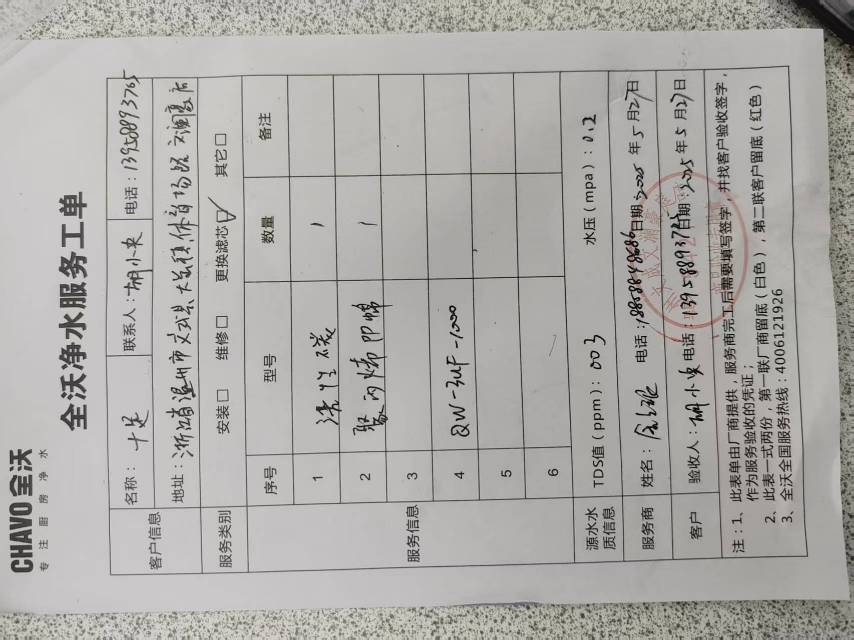 CHAVO全沃
专注厨房净水
全沃净水服务工单
客户信息 名称：十足 联系人：胡小央 电话：13958893765
地址：浙江省温州市文成县大峃镇体育场路
服务类别 安装□ 维修□ 更换滤芯☑ 其它□
服务信息 序号 型号 数量 备注
1 活性碳 1
2 聚丙烯PP棉 1
3
4 QW-3UF-1000
5
6
源水水质信息 TDS值（ppm）：003 水压（mpa）：0.2
服务商 姓名： 电话： 日期：2025年5月27日
客户 验收人：胡小央 电话：13958893765 日期：2025年5月27日
注：1、此表单由厂商提供，服务商完工后需要填写签字，并找客户验收签字，
作为服务验收的凭证；
2、此表一式两份，第一联厂商留底（白色），第二联客户留底（红色）
3、全沃全国服务热线：4006121926